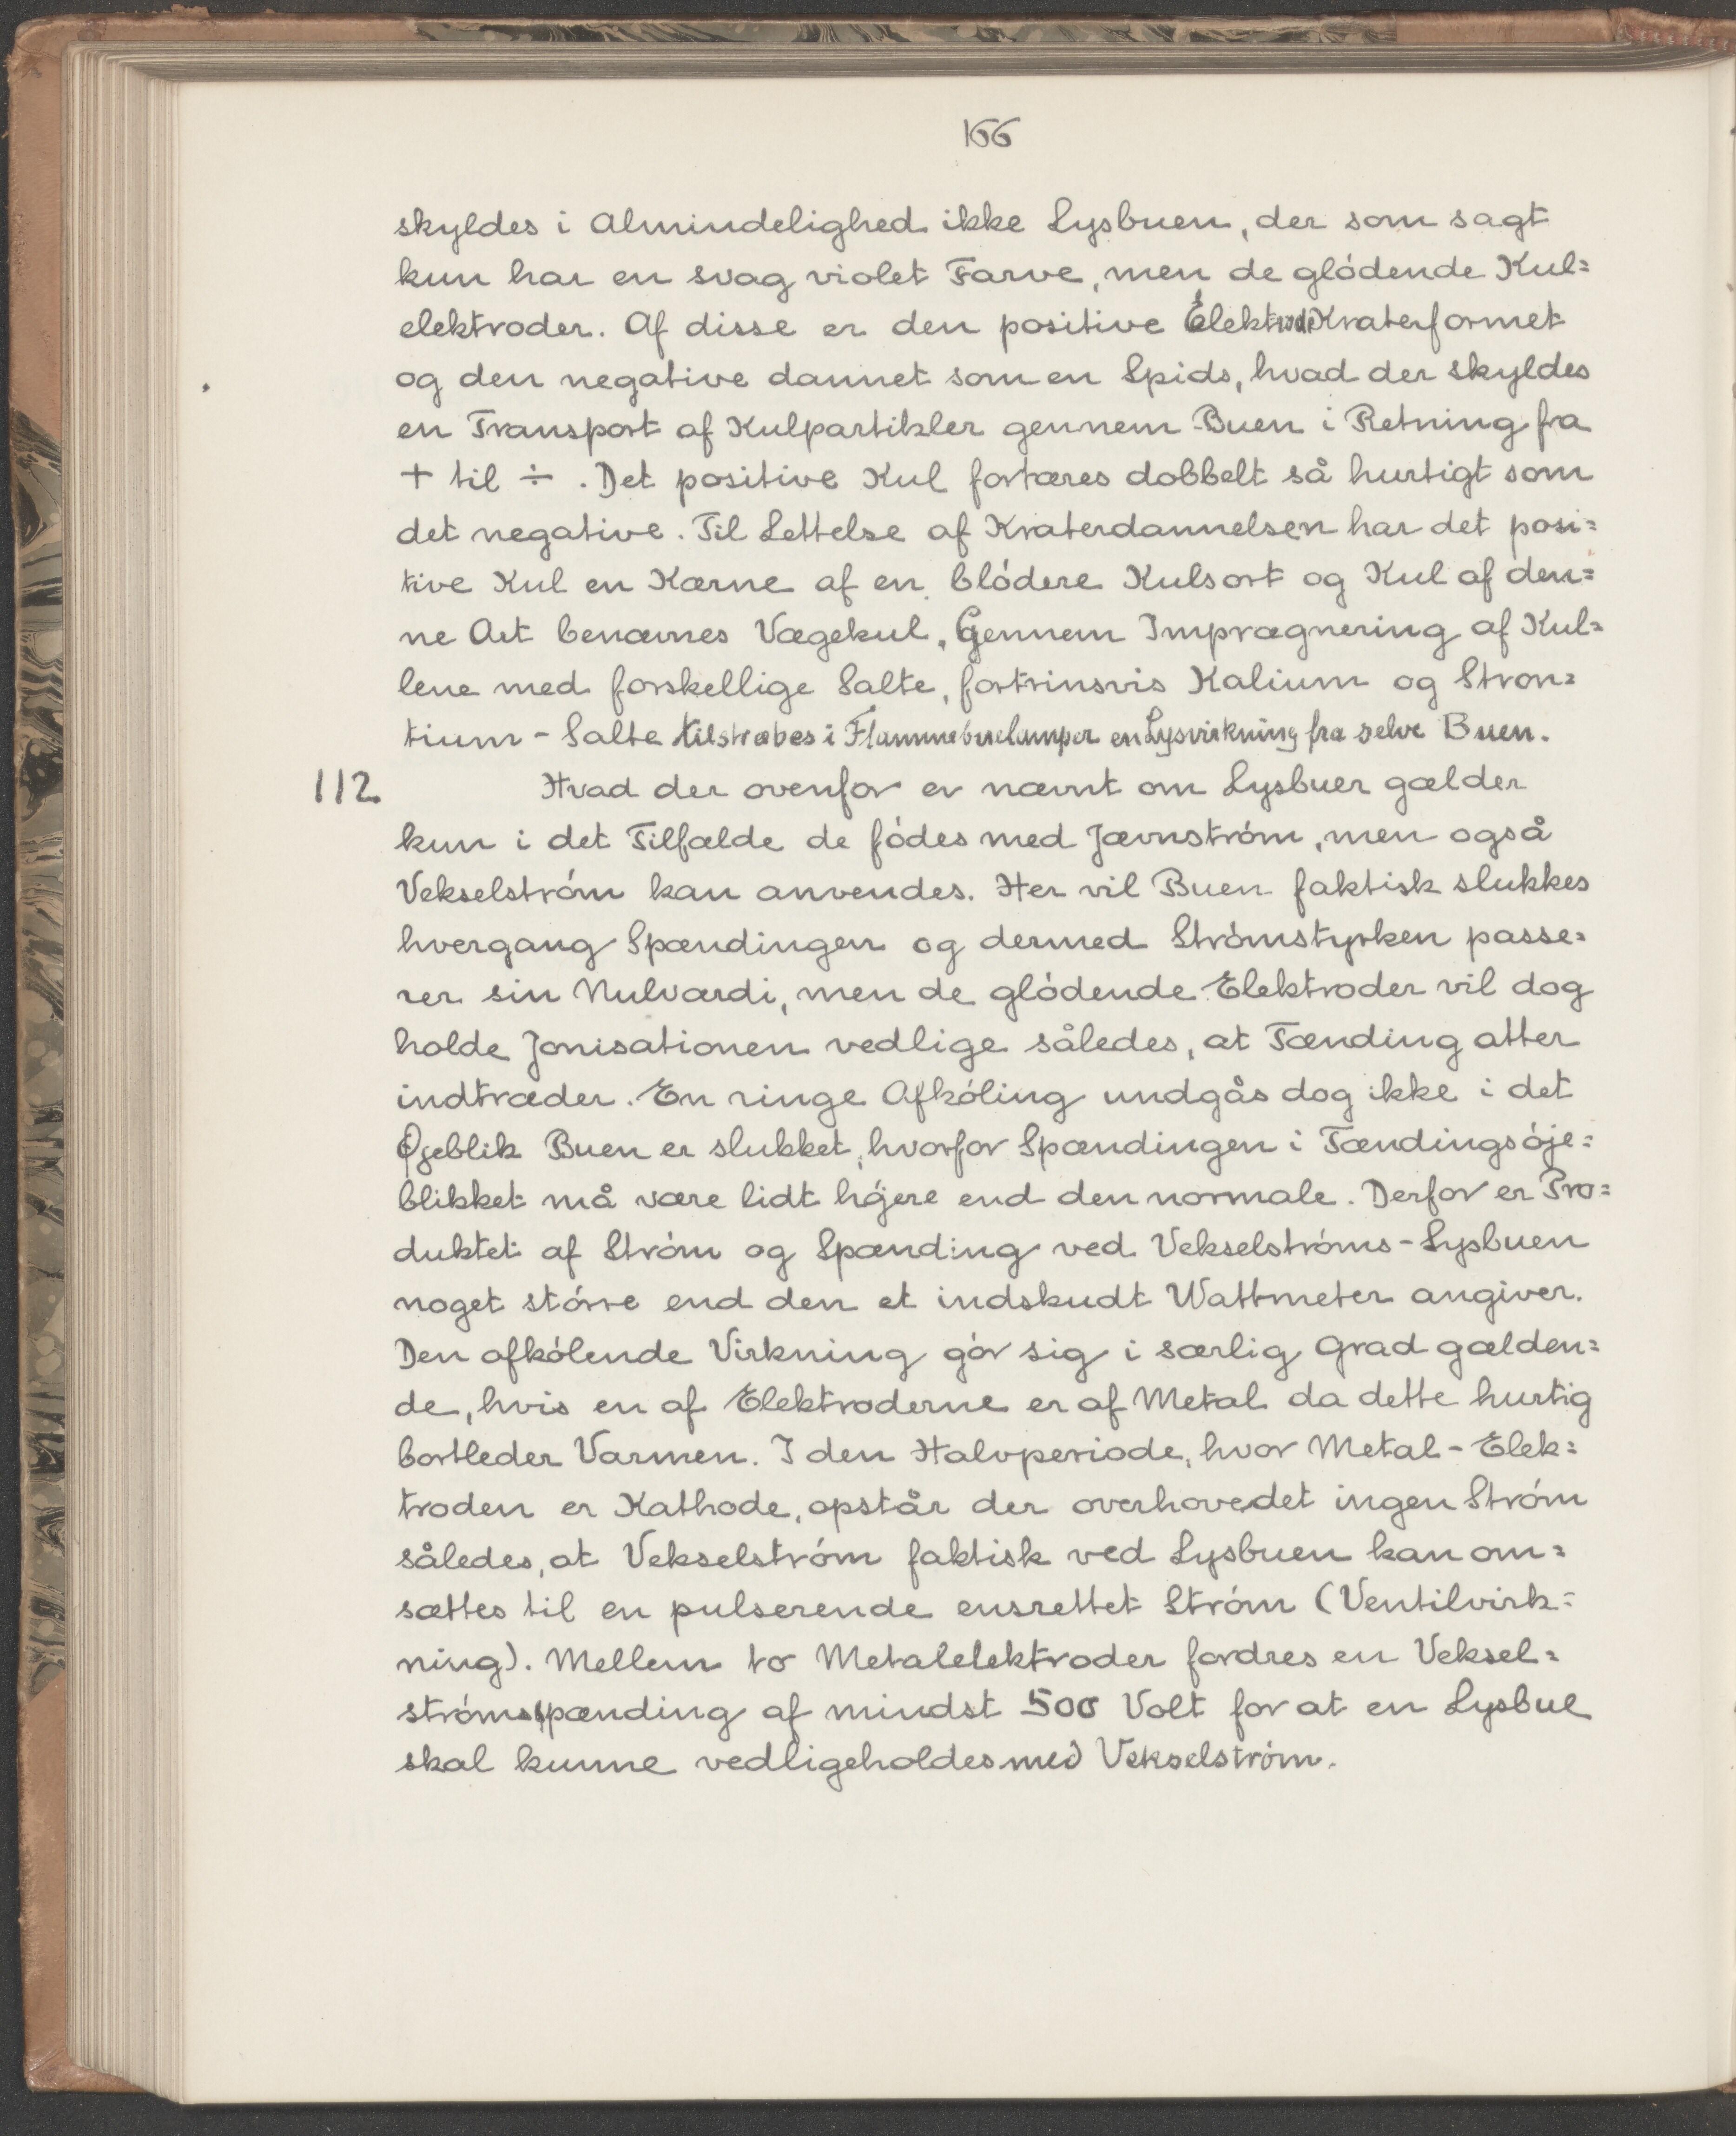 166
skyldes i Almindelighed ikke Lysbuen, der som sagt
kun har en svag violet Farve, men de glódende Kul=
elektroder. Af disse er den positive Elektrode Kraterformet
og den negative dannet som en Spids, hvad der skyldes
en Transport af Kulpartikler gennem Buen i Retning fra
+ til ÷ . Det positive Kul fortæres dobbelt så hurtigt som
det negative. Til Lettelse af Kraterdannelsen har det posi=
tive Kul en Kærne af en blódere Kulsort og Kul af den=
ne Art benævnes Vægekul. Gennem Imprægnering af Kul=
lene med forskellige Salte, fortrinsvis Kalium og Stron=
tium - Salte tilstræbes i Flammebuelamper en Lysvirkning fra selve Buen.
112. Hvad der ovenfor er nævnt om Lysbuer gælder
kun i det Tilfælde de fódes med Jævnstróm, men også
Vekselstróm kan anvendes. Her vil Buen faktisk slukkes
hvergang Spændingen og dermed Strómstyrken passe=
rer sin Nulværdi, men de glódende Elektroder vil dog
holde Jonisationen vedlige således, at Tænding atter
indtræder. En ringe Afkóling undgås dog ikke i det
Øjeblik Buen er slukket, hvorfor Spændingen i Tændingsóje=
blikket må være lidt hójere end den normale. Derfor er Pro=
duktet af Stróm og Spænding ved Vekselstróms-Lysbuen
noget stórre end den et indskudt Wattmeter angiver.
Den afkólende Virkning gór sig i særlig Grad gælden=
de, hvis en af Elektroderne er af Metal da dette hurtig
bortleder Varmen. I den Halvperiode, hvor Metal-Elek=
troden er Kathode, opstår der overhovedet ingen Stróm
således, at Vekselstróm faktisk ved Lysbuen kan om=
sættes til en pulserende ensrettet Stróm (Ventilvirk=
ning). Mellem to Metalelektroder fordres en Veksel=
strómsspænding af mindst 500 Volt for at en Lysbue
skal kunne vedligeholdes med Vekselstróm.